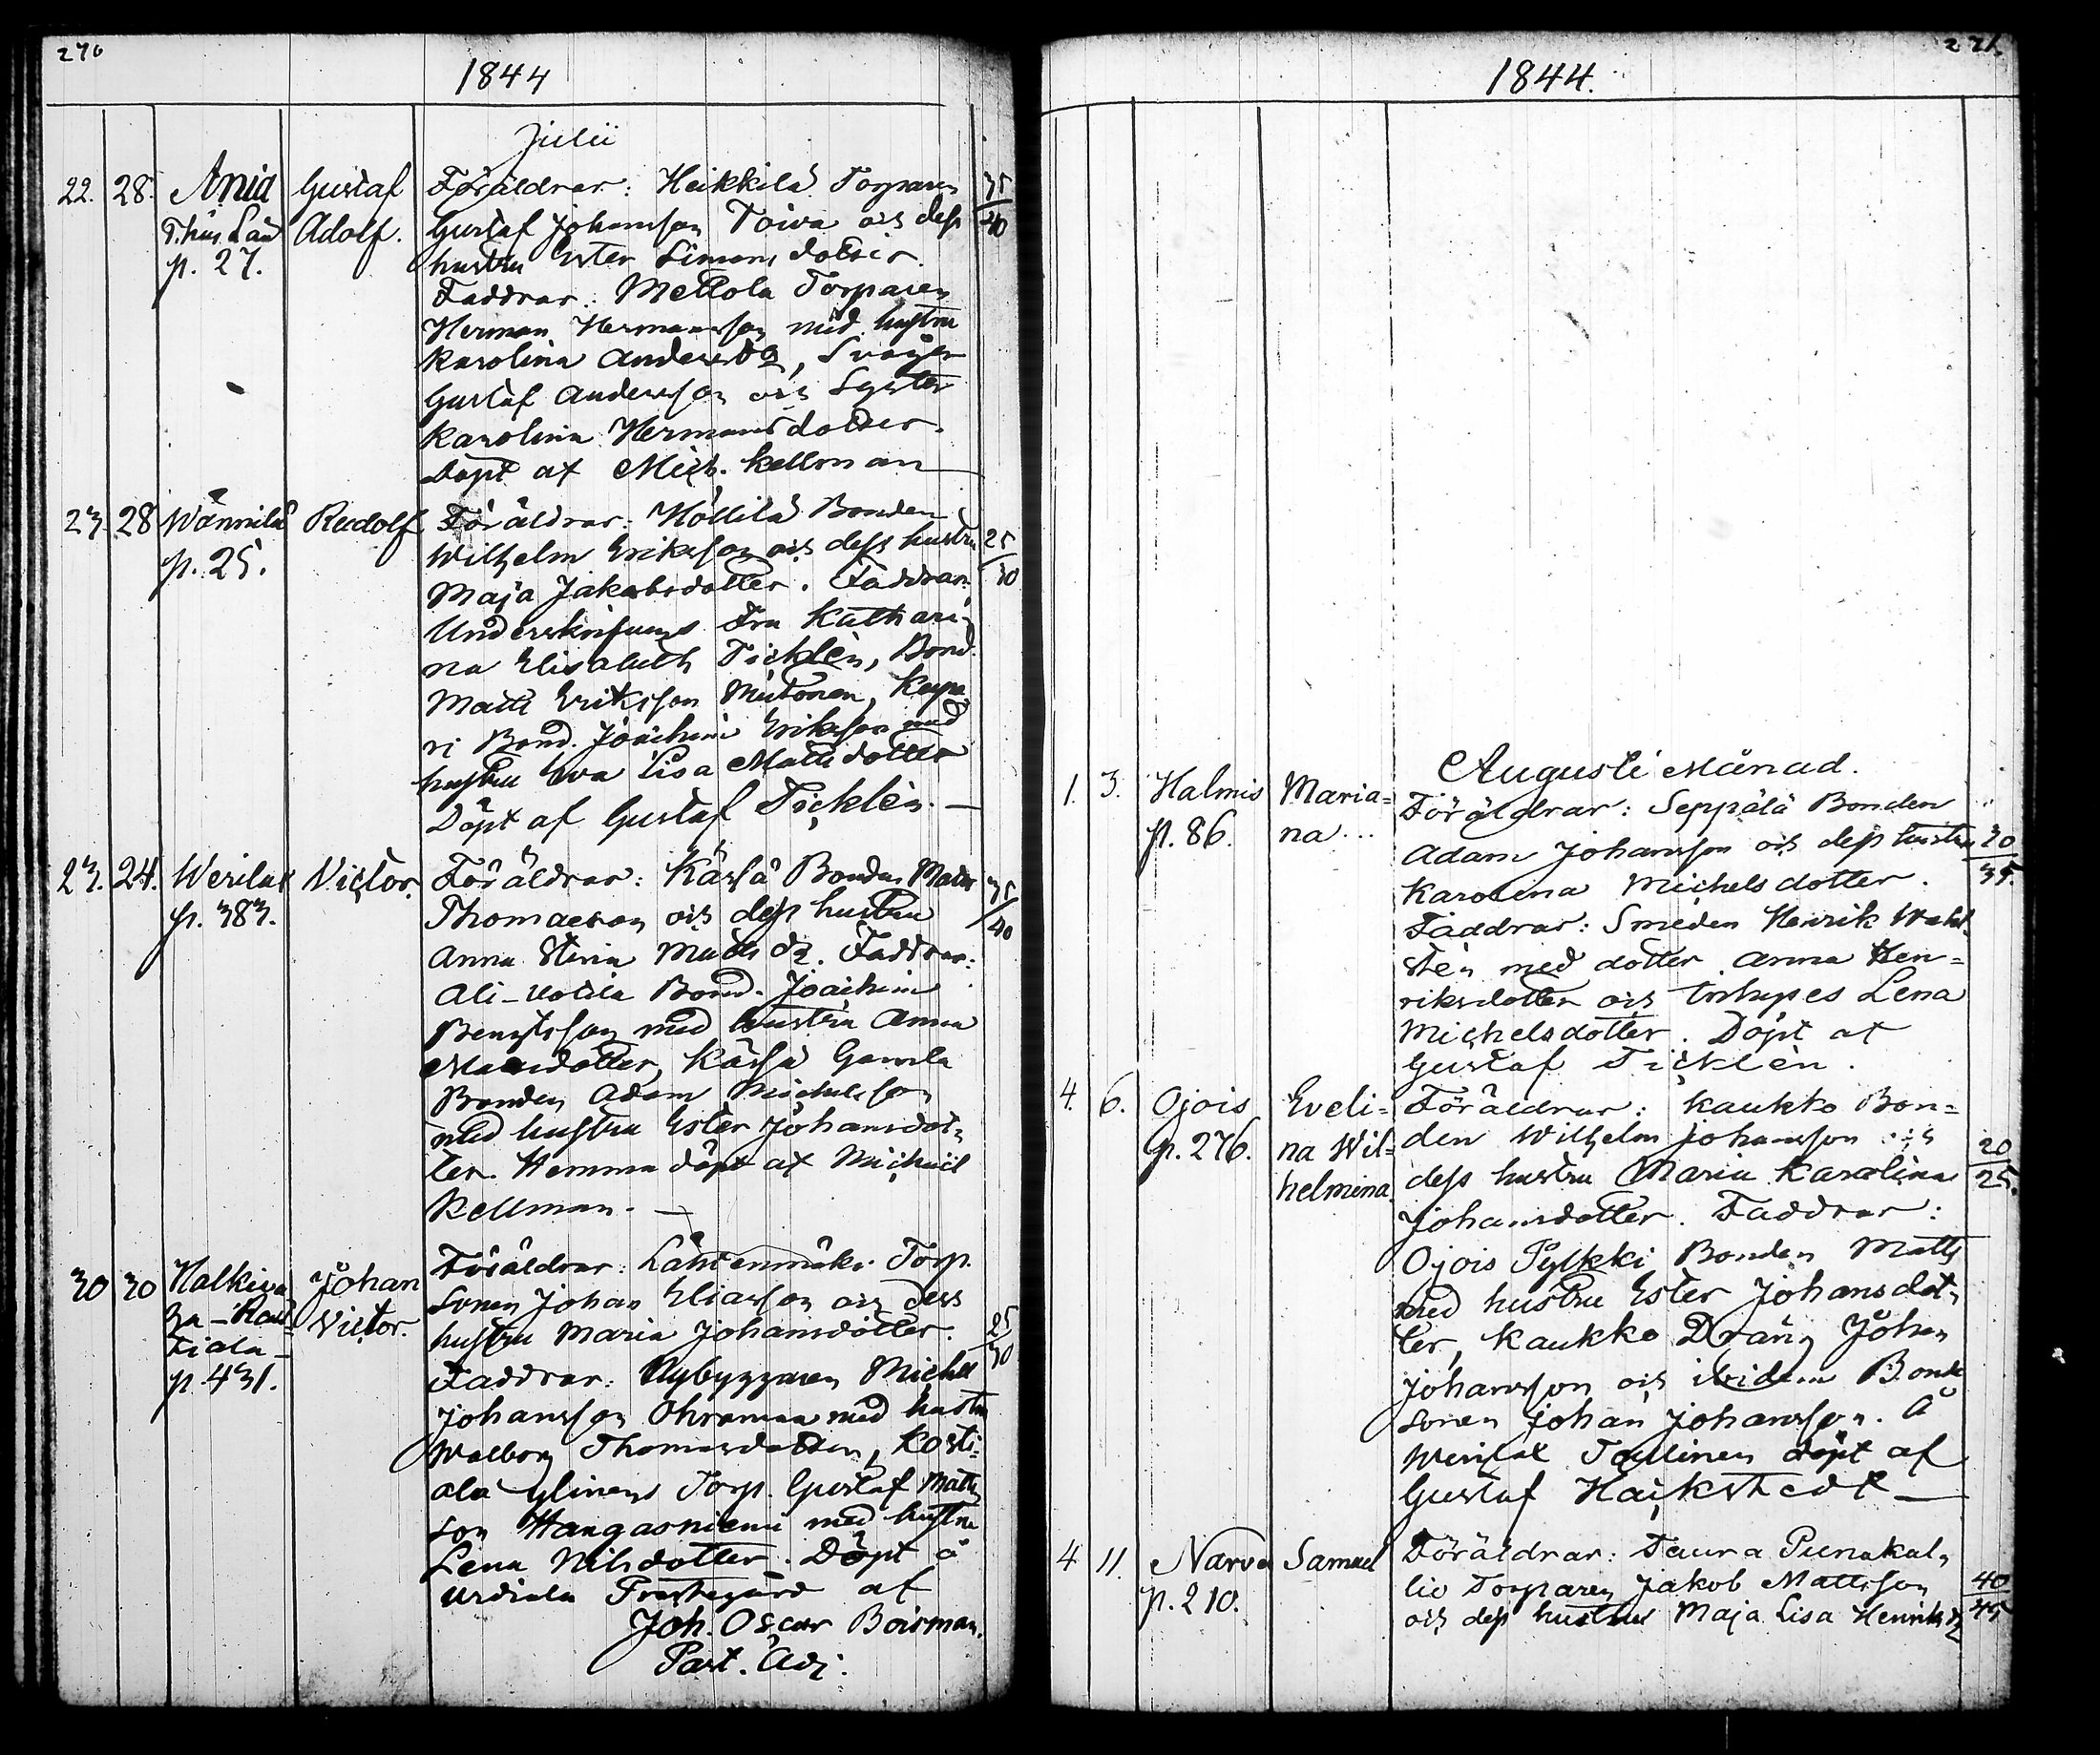 270
1844
Julii
22. 28. Ania Gustaf Föräldrar: Heikkilä Torparen 35
T. hus. Län Adolf. Gustaf Johansson Toiva och dess 40
p. 27. hustru Ester Simons dotter.
Faddrar: Mettola Torparen
Herman Hermansson med hustru
Karolina Andersdr, Svåger
Gustaf Andersson och Syster
Karolina Hermansdotter.
Döpt af Mich. Kellman
23. 28 Wännilä Rudolf Föräldrar: Höllilä Bonden
p. 25. Wilhelm Eriksson och dess hustru 25
Maja Jakobsdotter. Faddrar: 30
Fru Kathari-
na Elisabeth Ticklèn, Bond.
Matti Eriksson Kupa
ri Bond. Joachim Eriksson med
hustru Eva Lisa Mattsdotter
Döpt af Gustaf Ticklèn.
23. 24. Werilax Victor. Föräldrar: Kärsä Bonden Mats 35
p. 383. Thomasson och dess hustru 40
Anna Stina Mats dr. Faddrar:
Ali-Uotila Bond. Joachim
Bengtsson med hustru Anna
Matsdotter, Kärsä Gamla
Bonden Adam Michelsson
med hustru Ester Johansdot-
ter. Hemma döpt af Michaël
Kellman.
30 30 Halkiva Johan Föräldrar: Lähteenmäki Torp.
Za-Rau- Victor. Sonen Johan Eliasson och dess
tiala- hustru Maria Johansdotter. 25
p. 431. Faddrar: Nybyggaren Michel 30
Johansson Ohraman med hustru
Walborg Thomasdotter, Kosti-
ala Ylinens Torp. Gustaf Matts
son Hangasniemi med hustru
Lena Nilsdotter. Döpt å
Urdiala Prestegård af
Joh. Oscar Boisman.
Past. Adj.
271.
1844.
Augusti Månad.
1. 3. Halmis Maria= Föräldrar: Seppälä Bonden
p. 86. na Adam Johansson och dess hustru 30
Karolina Michelsdotter. 35.
Faddrar: Smeden Henrik Wahl-
stèn med dotter Anna Hen=
riksdotter och Inhyses Lena
Michelsdotter. Döpt af
Gustaf Ticklèn.
4. 6. Ojois Eveli= Föräldrar: Kaukko Bon=
p. 276. na Wil- den Wilhelm Johansson och 20
helmina dess hustru Maria Karolina 25.
Johansdotter. Faddrar:
Ojois Pylkki Bonden Matts
med hustru Ester Johansdot-
ter, Kaukko Dräng Johan
Johansson och ibidem Bonde
sonen Johan Johansson. Å
Werilax döpt af
Gustaf Haikstedt
4 11. Narva Samuel Föräldrar: Taura Punakal-
p. 210. lio Torparen Jakob Mattsson 40
och dess hustru Maja Lisa Henriksdr 45